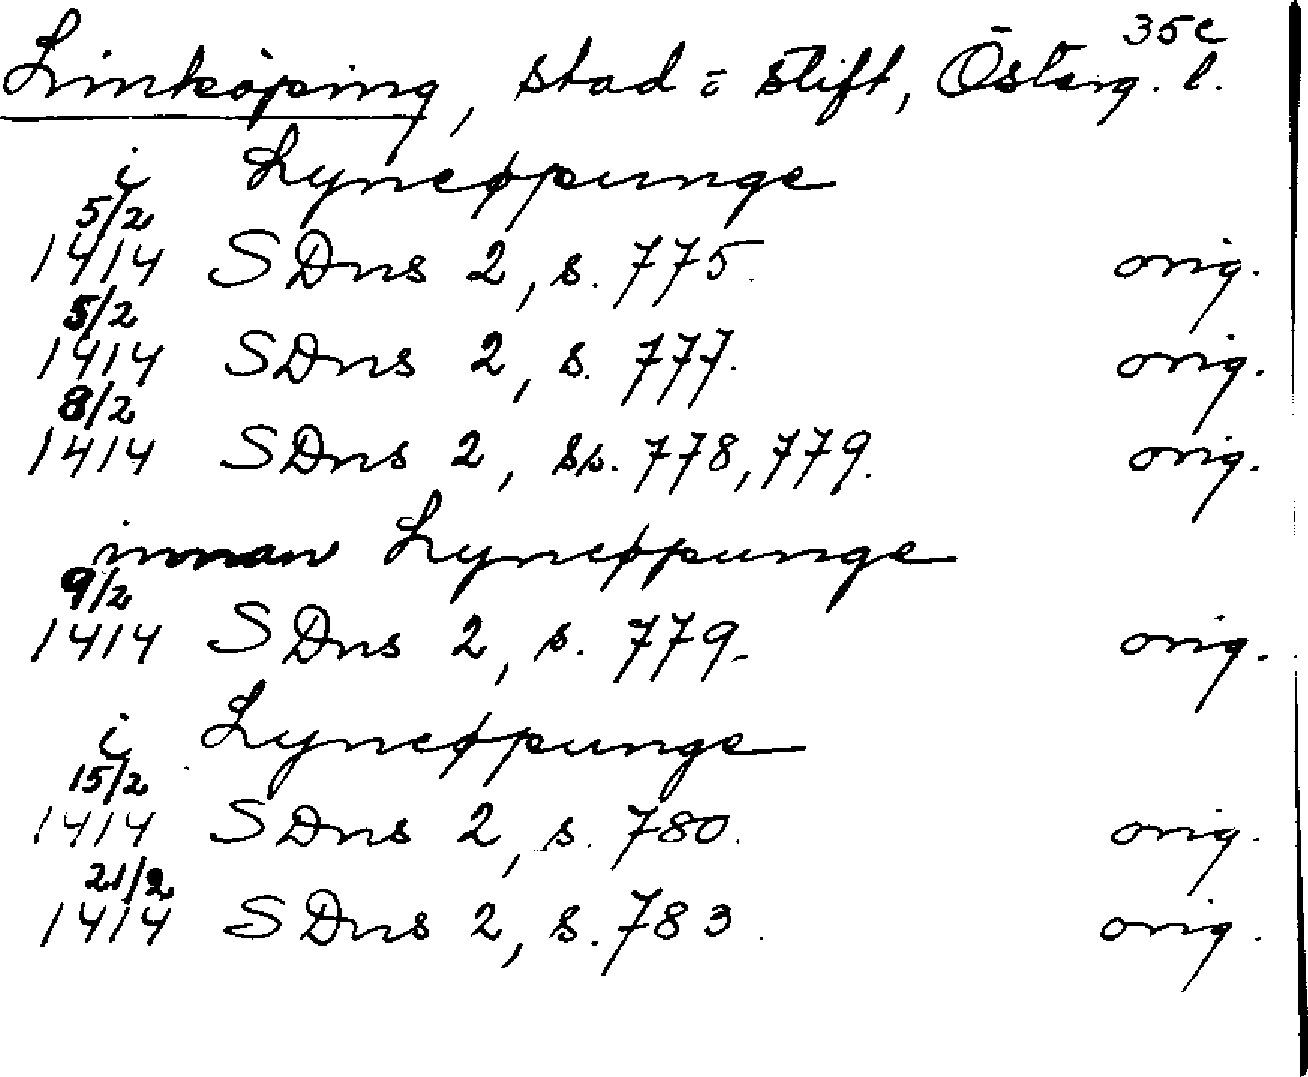 35c
Linköping, stad o. stift, Österg. l.
i Lyncøpunge
5/2
1414 SDns 2, s. 775. orig.
5/2
1414 SDns 2, s. 777. orig.
8/2
1414 SDns 2, ss. 778, 779. orig.
innan Lyncøpunge
9/2
1414 SDns 2, s. 779. orig.
i Lyncøpunge
15/2
1414 SDns 2, s. 780. orig.
21/2
1414 SDns 2, s. 783. orig.